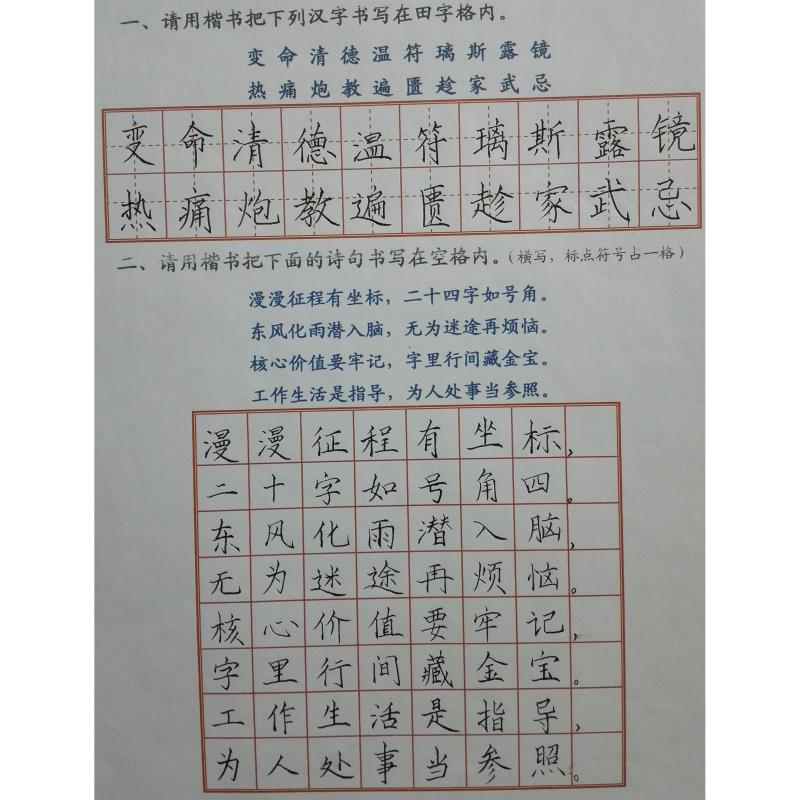 一、请用楷书把下列汉字书写在田字格内。
变命清德温符璃斯露镜
热痛炮教遍匮趁家武忌
变命清德温符璃斯露镜
热痛炮教遍匮趁家武忌
二、请用楷书把下面的诗句书写在空格内。(横写,标点符号占一格)
漫漫征程有坐标,二十四字如号角。
东风化雨潜入脑,无为迷途再烦恼。
核心价值要牢记,字里行间藏金宝。
工作生活是指导,为人处事当参照。
漫漫征程有坐标,
二十字如号角四。
东风化雨潜入脑,
无为迷途再烦恼。
核心价值要牢记,
字里行间藏金宝。
工作生活是指导,
为人处事当参照。